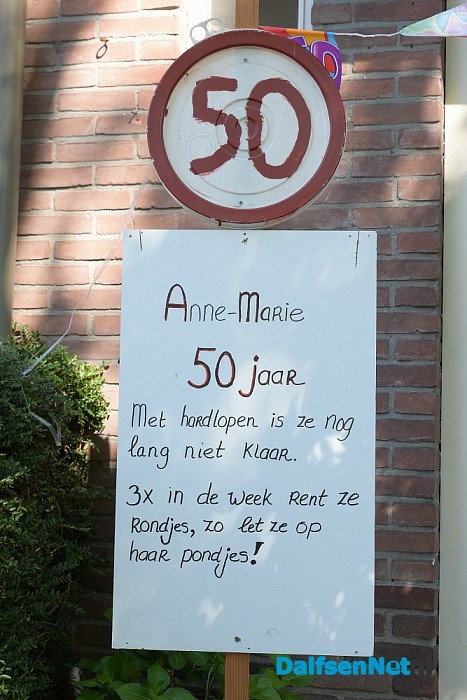 50
Anne-Marie
50 jaar
Met hardlopen is ze nog
lang niet klaar.
3x in de week rent ze
rondjes, zo let ze op
haar pondjes!
DalfsenNet